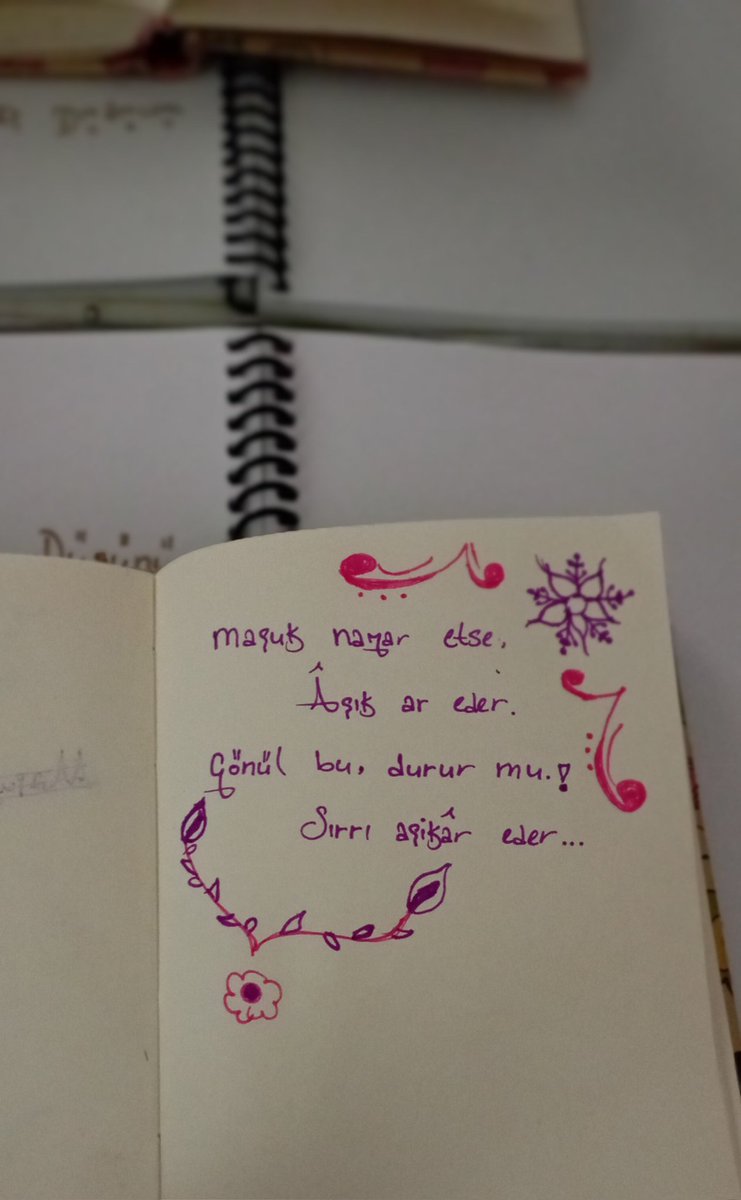 maşuk nazar etse,
Âşık ar eder.
Gönül bu, durur mu.!
Sırrı aşikâr eder...